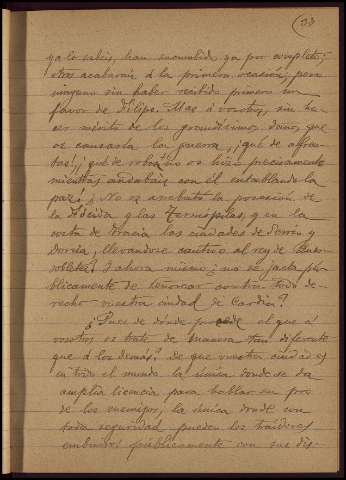 33
ya lo sabeis, han sucumbido ya por completo;
otros acabarán á la primera ocasión; pero
ninguno sin haber recibido primero un
favor de Filipo. Mas á vosotros, sin ha-
cer mérito de los grandísimos daños que
os causaba la guerra, ¡qué de afren-
tas!, ¡qué de robos no os hizo precisamente
mientras andabais con él entablando la
paz! ¿No os arrebató la posesión de
la Fócida y las Termópilas, y en la
costa de Tracia las ciudades de Serrio y
Dorisca, llevandose cautivo al rey de
¿Y ahora mismo, no se jacta pú-
blicamente de señorear contra todo de-
recho vuestra ciudad de Cardia?
¿Pues de dónde procede el que á
vosotros os trate de manera tan diferente
que á los demás? De que vuestra ciudad es
en todo el mundo la única donde se da
amplia licencia para hablar en pro
de los enemigos, la única donde con
toda seguridad pueden los traidores
embuiros públicamente con sus dis-